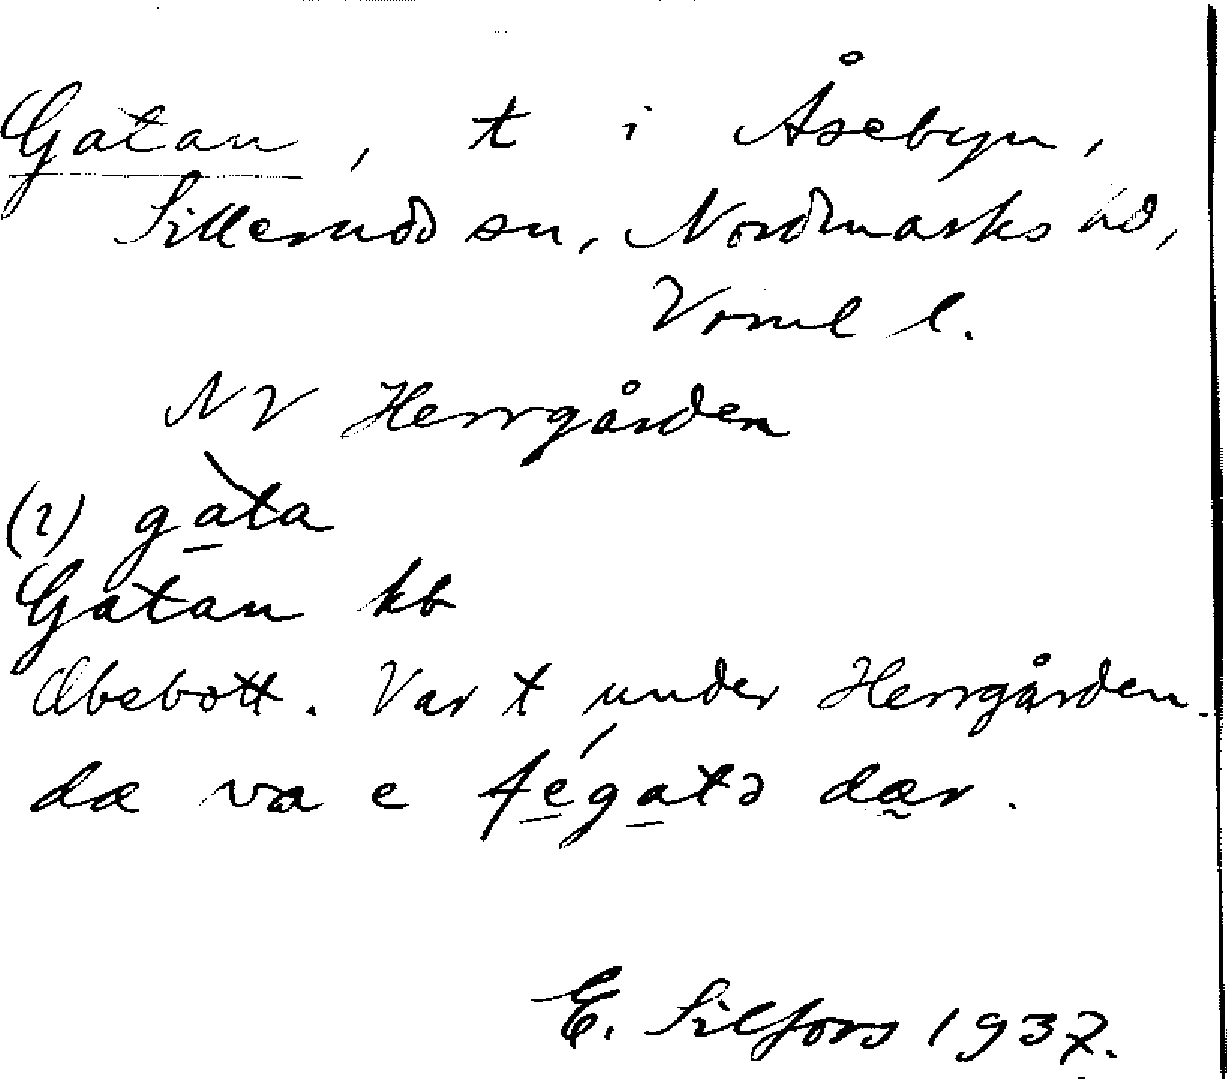 Gatan, t i Åsebyn,
Sillerudd sn, Nordmarks hd,
Värml l.
NV Herrgården
(i) gàta
Gatan kb
Obebott. Var t under Herrgården.
dæ va e fégatə dær.
E. Silfors 1937.